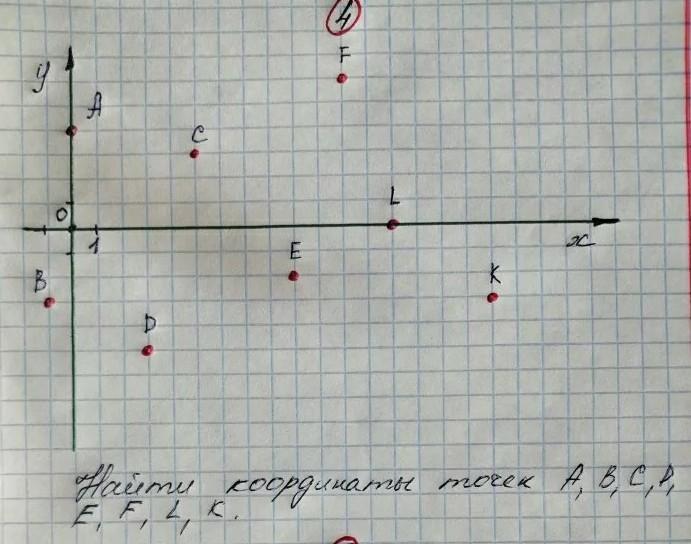 4
F
y
A
C
L
0
1
x
E
B
K
D
Найти координаты точек A, B, C, D,
E, F, L, K.